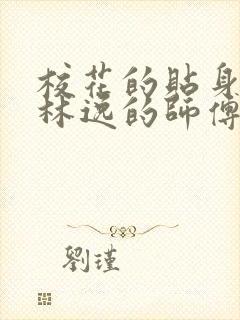 校花的貼身
林逸的師傅
劉瑾